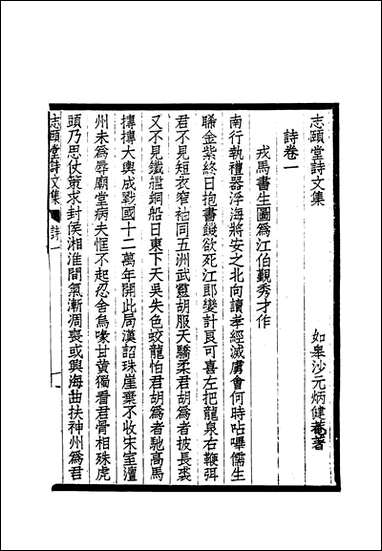 志頤堂詩文集
如皋沙元炳健菴著
詩卷一
戎馬書生圖爲江伯觀秀才作
南行執禮器浮海將安之北向讀孝經滅虜會何時呫嗶儒生
睎金紫終日抱書饑欲死江郎變計良可喜左把龍泉右鞭弭
君不見短衣窄袖同五洲武靈胡服天驕柔君胡爲者披長裘
又不見鐵艦銅船日東下天吳失色蛟龍怕君胡爲者馳高馬
摶摶大輿成戰國十二萬年開此局漢詔珠崖棄不收宋室澶
州未爲辱廟堂病夫恇不起忍舍烏喙甘黄獨看君骨相殊虎
頭乃思仗策求封侯湘淮間氣漸凋喪或興海曲扶神州爲君
志頤堂詩文集
詩一
一